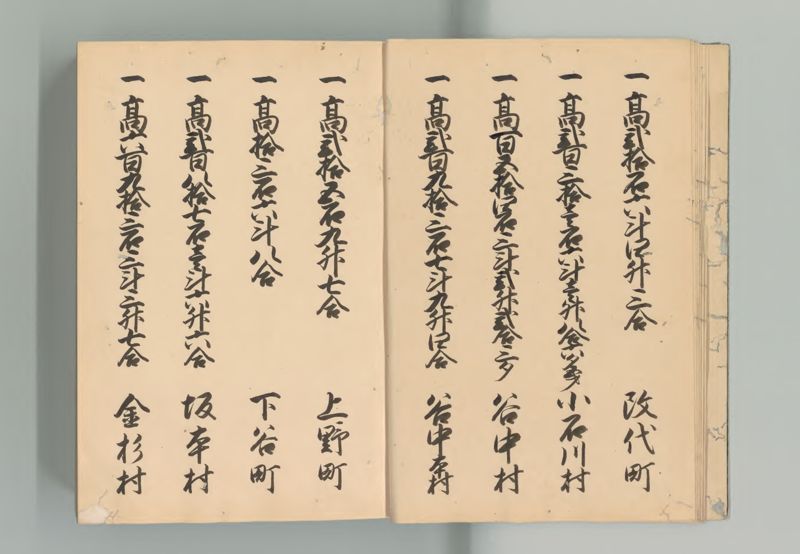 一高弐拾石六斗四升三合 改代町
一高弐百三拾壱石六斗壱升八合六夕 小石川村
一高百五拾四石三斗弐升弐合三夕 谷中村
一高弐百九拾三石七斗九升四合 谷中本村
一高弐拾五石九升七合 上野町
一高拾三石六斗八合 下谷町
一高弐百八拾七石壱斗六升六合 坂本村
一高六百九拾三石三斗三升七合 金杉村